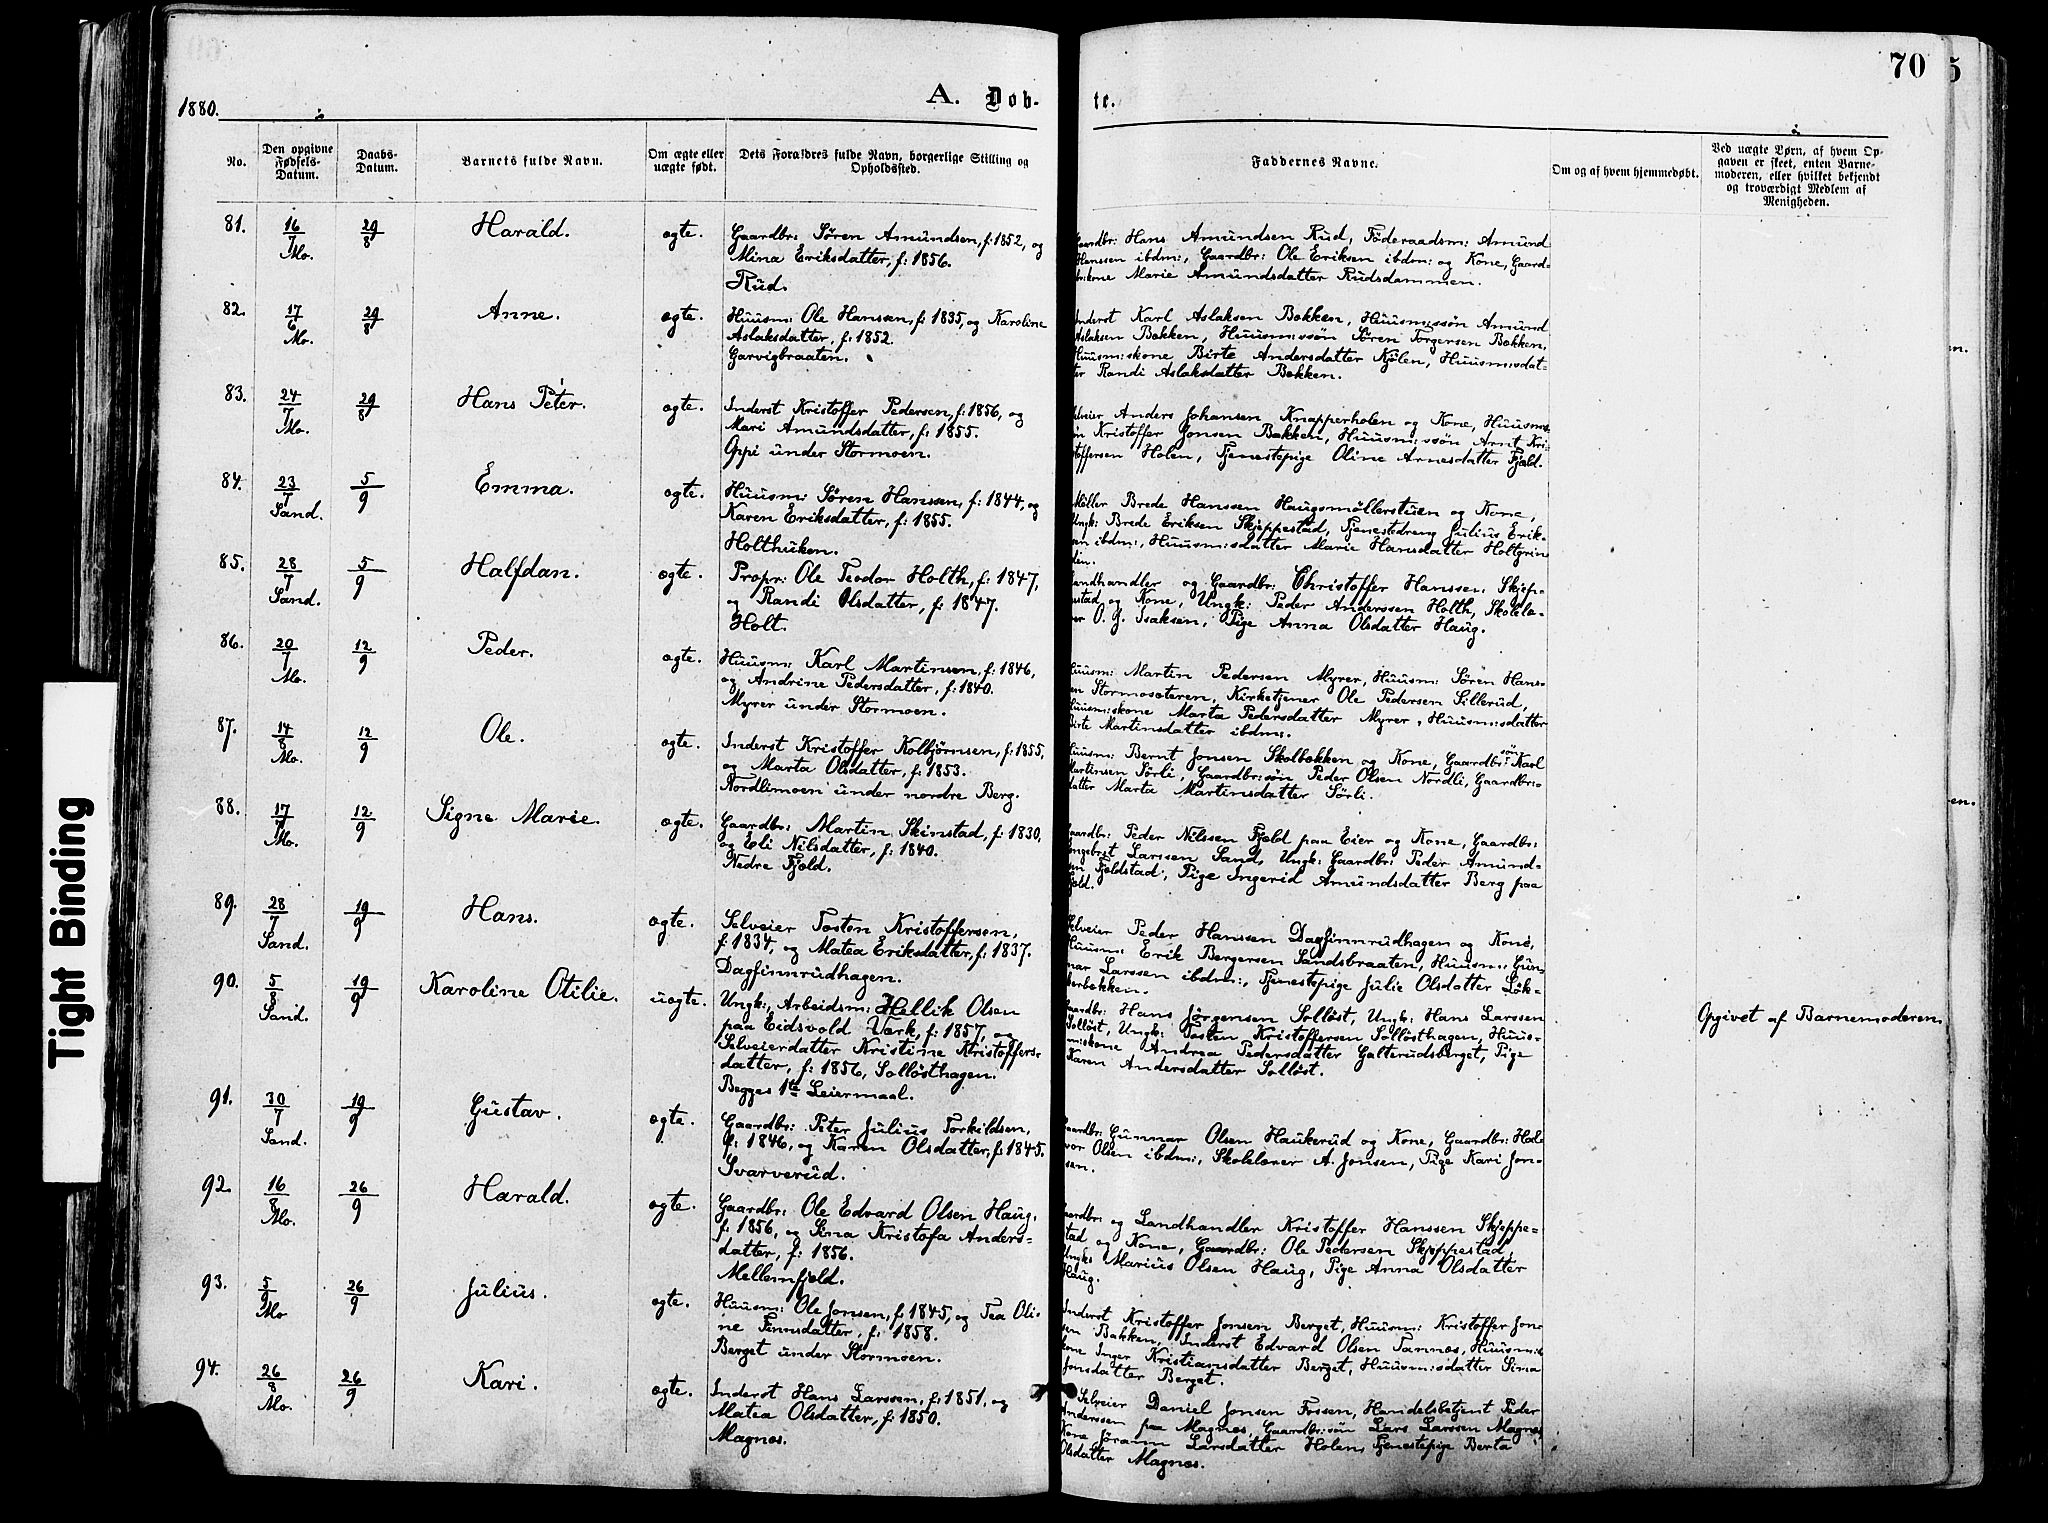 70
5
1880.
A. Døb-
te.
No.
Den opgivne Fødsels-Datum.
Daabs-Datum.
Barnets fulde Navn.
Om ægte eller uægte født.
Dets Forældres fulde Navn, borgerlige Stilling og Opholdssted.
Faddernes Navne.
Om og af hvem hjemmedøbt.
Ved uægte Børn, af hvem Op-
gaven er skeet, enten Barne-
moderen, eller hvilket bekjendt
og troværdigt Medlem af
Menigheden.
81. 16/7 Mo. 29/8 Harald. ægte.
Gaardbr: Søren Amundsen, f: 1852, og
Mina Eriksdatter, f: 1856.
Rud.
Gaardbr: Hans Amundsen Rud, Föderaadsm: Amund
Hanssen ibdm:, Gaardbr: Ole Eriksen ibdm: og Kone, Gaard-
brkone Marie Amundsdatter Rudsdammen.
82. 17/6 Mo. 29/8 Anne. ægte.
Huusm: Ole Hanssen, f: 1835, og Karoline
Aslaksdatter, f: 1852.
Garvigbraaten.
Inderst Karl Aslaksen Bakken, Huusm:ssön Amund
Aslaksen Bakken, Huusm:ssön Søren Torgersen Bakken,
Huusm:skone Birte Andersdatter Kjölen, Huusm:sdat-
ter Randi Aslaksdatter Bakken.
83. 24/7 Mo. 29/8 Hans Peter. ægte.
Inderst Kristoffer Pedersen, f: 1856, og
Mari Amundsdatter, f: 1855.
Oppi under Stormoen.
Selveier Anders Johansen Knapperholen og Kone, Huusms-
sön Kristoffer Jonsen Bakken, Huusm:ssön Arnt Kri-
stoffersen Holen, Tjenestepige Oline Arnesdatter Fjæld.
84. 23/7 Sand. 5/9 Emma. ægte.
Huusm: Søren Hanssen, f: 1844, og
Karen Eriksdatter, f: 1855.
Holthuken.
Møller Brede Hanssen Haugsmøllerstuen og Kone,
Ungk: Brede Eriksen Skjeppestad, Tjenestedreng Julius Erik-
sen ibdm:, Huusm:sdatter Marie Hansdatter Holtgrin-
den.
85. 28/7 Sand. 5/9 Halfdan. ægte.
Propr: Ole Teodor Holth, f: 1847,
og Randi Olsdatter, f: 1847.
Holt.
Landhandler og Gaardbr: Christoffer Hanssen Skjep-
pestad og Kone, Ungk: Peder Anderssen Holth, Skolelæ-
rer O. G. Isaksen, Pige Anna Olsdatter Haug.
86. 20/7 Mo. 12/9 Peder. ægte.
Huusm: Karl Martinsen, f: 1846,
og Andrine Pedersdatter, f: 1840.
Myrer under Stormoen.
Huusm: Martin Pedersen Myrer, Huusm: Søren Hans-
sen Stormosæteren, Kirketjener Ole Pedersen Sillerud,
Huusm:skone Marta Pedersdatter Myrer, Huusm:sdatter
Birte Martinsdatter ibdm:.
87. 14/8 Mo. 12/9 Ole. ægte.
Inderst Kristoffer Kolbjørnsen, f: 1855,
og Marta Olsdatter, f: 1853.
Nordlimoen under nordre Berg.
Huusm: Bernt Jonsen Skolbakken og Kone, Gaardbr:sön Karl
Martinsen Sörli, Gaardbr:sön Peder Olsen Nordli, Gaardbr:-
datter Marta Martinsdatter Sörli.
88. 17/7 Mo. 12/9 Signe Marie. ægte.
Gaardbr: Martin Skinstad, f: 1830,
og Eli Nilsdatter, f: 1840.
Nedre Fjæld.
Gaardbr: Peder Nilssen Fjæld paa Eier og Kone, Gaardbr:
Engebret Larssen Sand, Ungk: Gaardbr: Peder Amund-
sen Fjeldstad, Pige Ingerid Amundsdatter Berg paa
Fjæld.
89. 28/7 Sand. 19/9 Hans. ægte.
Selveier Tosten Kristoffersen,
f: 1834, og Matea Eriksdatter, f: 1837.
Dagfinnrudhagen.
Selveier Peder Hanssen Dagfinnrudhagen og Kone,
Huusm: Erik Bergersen Sandsbraaten, Huusm: Gun-
nar Larssen ibdm:, Tjenestepige Julie Olsdatter Løk-
kerbakken.
90. 5/8 Sand. 19/9 Karoline Otilie. uægte.
Ungk:, Arbeidsm: Hellik Olsen
paa Eidsvold Værk, f: 1857, og
Selveierdatter Kristine Kristoffers-
datter, f: 1856, Solløsthagen.
Begges 1te Leiermaal.
Gaardbr: Hans Jørgensen Solløst, Ungk: Hans Larssen
Solløst, Ungk: Tosten Kristoffersen Solløsthagen, Huus-
m:skone Andrea Pedersdatter Galterudsberget, Pige
Karen Andersdatter Solløst.
Opgivet af Barnemoderen.
91. 30/7 Sand. 19/9 Gustav. ægte.
Gaardbr: Peter Julius Torkildsen,
f: 1846, og Karen Olsdatter, f: 1845.
Svarverud.
Gaardbr: Gunnar Olsen Haukerud og Kone, Gaardbr: Hal-
vor Olsen ibdm:, Skolelærer A. Jonsen, Pige Kari Jon-
sen.
92. 16/8 Mo. 26/9 Harald. ægte.
Gaardbr: Ole Edvard Olsen Haug,
f: 1856, og Sina Kristofa Anders-
datter, f: 1856.
Mellemfjeld.
Gaardbr: og Landhandler Kristoffer Hanssen Skjeppe-
stad og Kone, Gaardbr: Ole Pedersen Skjeppestad,
Ungk: Marius Olsen Haug, Pige Anna Olsdatter
Haug.
93. 5/9 Mo 26/9 Julius. ægte.
Huusm: Ole Jonsen, f: 1845, og Tea Oli-
ne Finnsdatter, f: 1858.
Berget under Stormoen.
Inderst Kristoffer Jonsen Berget, Huusm: Kristoffer Jon-
sen Bakken, Inderst Edvard Olsen Tamnes, Huusm:s-
kone Inger Kristiansdatter Berget, Huusm:sdatter Sina
Jonsdatter Berget.
94. 26/8 Mo. 26/9 Kari. ægte.
Inderst Hans Larssen, f: 1851, og
Matea Olsdatter, f: 1850.
Magnæs.
Selveier Daniel Jonsen Fossen, Handelsbetjent Peder
Anderssen paa Magnæs, Gaardbr:sön Lars Larssen Magnæs,
Kone Jøran Larsdatter Holen, Tjenestepige Berta
Olsdatter Magnæs.
en.
en.
Tight Binding